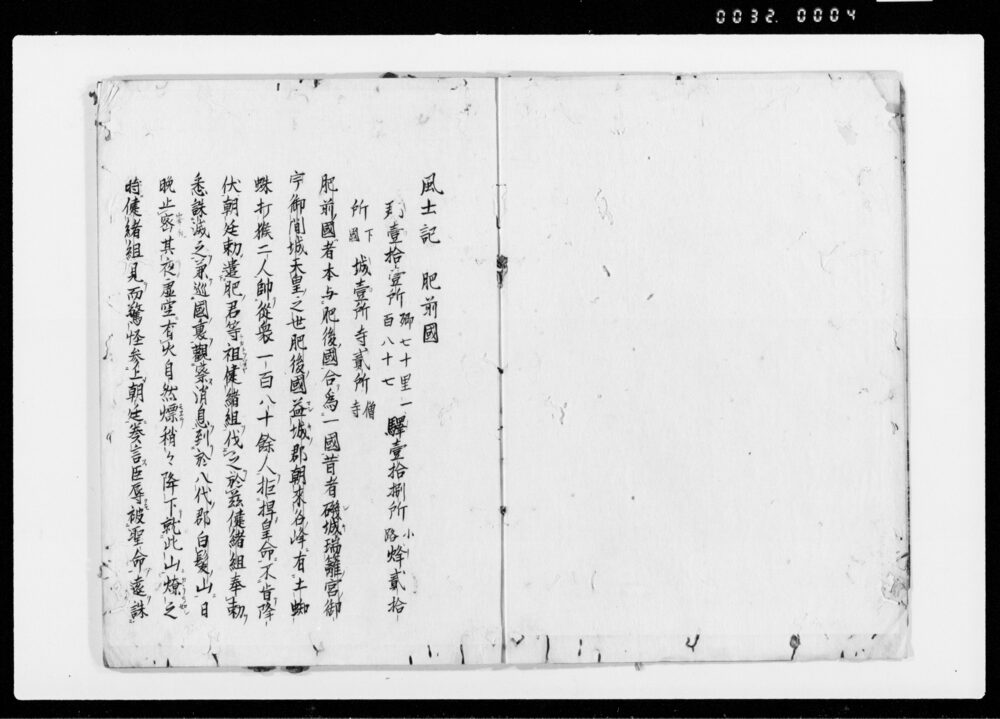 0032.0004
風土記 肥前國
郡壹拾壹所 鄕七十里一百八十七 驛壹拾捌所 小路 烽貳拾
所 下國 城壹所 寺貳所 僧寺
肥前國者本与肥後國合爲一國昔者磯城瑞籬宮御
宇御間城天皇之世肥後國益城郡朝來谷峰有土蜘
蛛打猴二人帥從衆一百八十餘人拒捍皇命不肯降
伏朝廷勅遣肥君等祖健緒組伐之於茲健緒組奉勅
悉誅滅之兼巡國裏觀察消息到於八代郡白髮山日
晩止宿其夜虛空有火自然燎稍々降下就此山燎之
時健緒組見而驚怪参上朝廷奏言臣辱被聖命遠誅